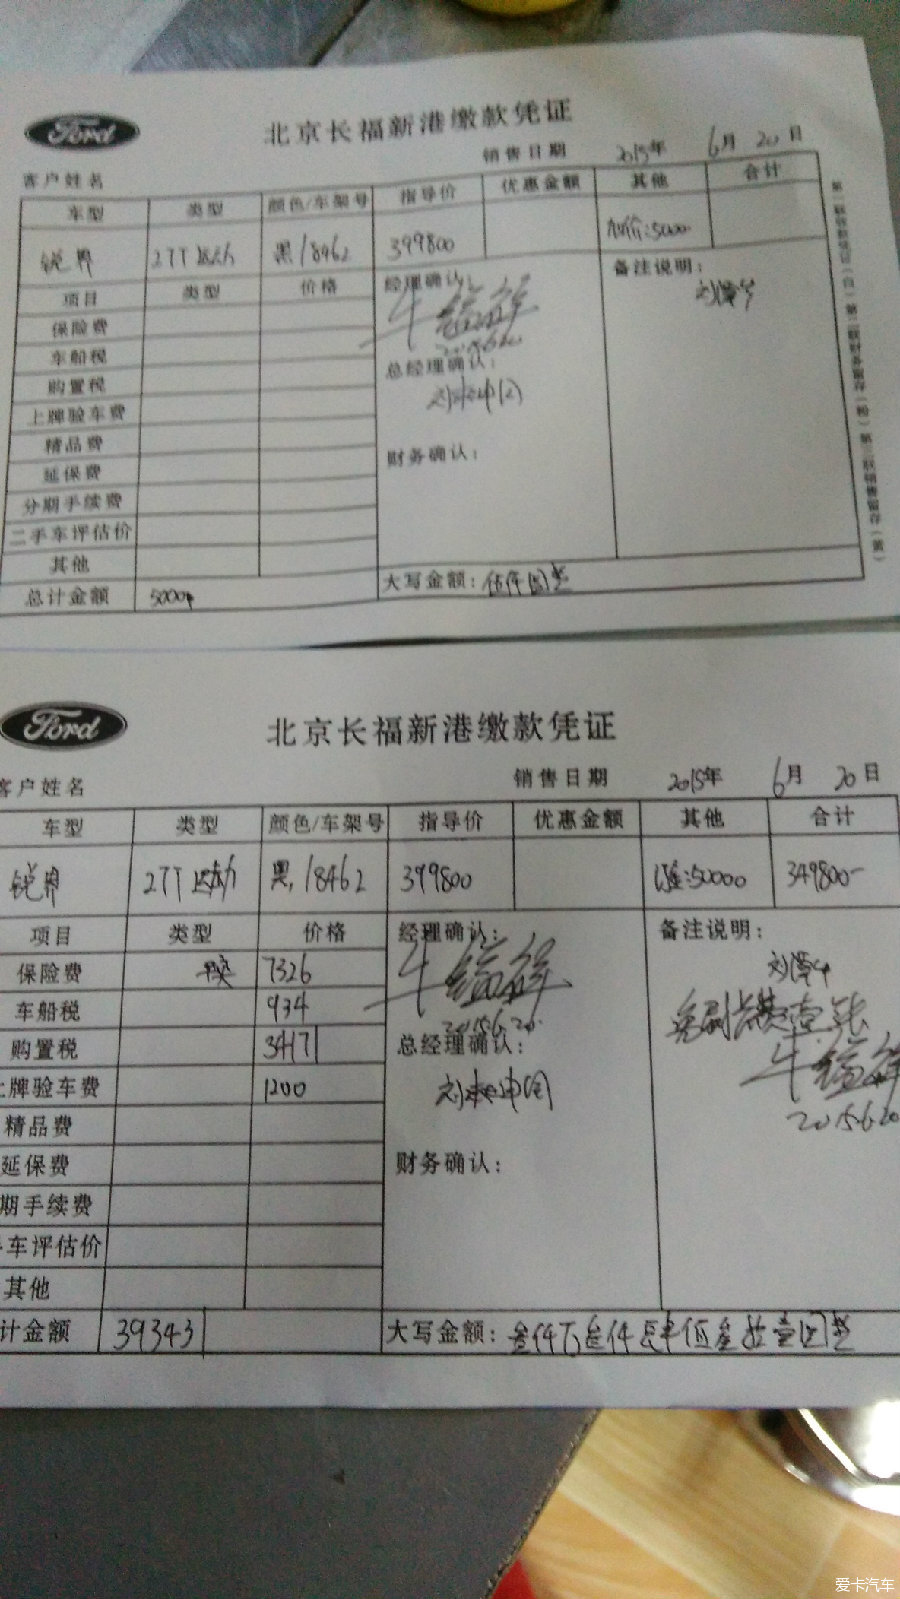 Ford
北京长福新港缴款凭证
销售日期 2015年 6月 20日
客户姓名
车型 类型 颜色/车架号 指导价 优惠金额 其他 合计
锐界 27T运动 黑/8462 399800 加价:5000
项目 类型 价格 经理确认: 备注说明:
保险费
2015.6.20
车船税
总经理确认:
购置税
上牌验车费
精品费
财务确认:
延保费
分期手续费
二手车评估价
其他
总计金额 5000 大写金额: 伍仟圆整
Ford
北京长福新港缴款凭证
销售日期 2015年 6月 20日
客户姓名
车型 类型 颜色/车架号 指导价 优惠金额 其他 合计
锐界 27T运动 黑/8462 399800 50000 349800-
项目 类型 价格 经理确认: 备注说明:
保险费 7326
车船税 934
2015.6.20
购置税 34171 总经理确认:
上牌验车费 1200
2015.6.20
精品费
延保费 财务确认:
期手续费
车评估价
其他
计金额 393431 大写金额:
爱卡汽车